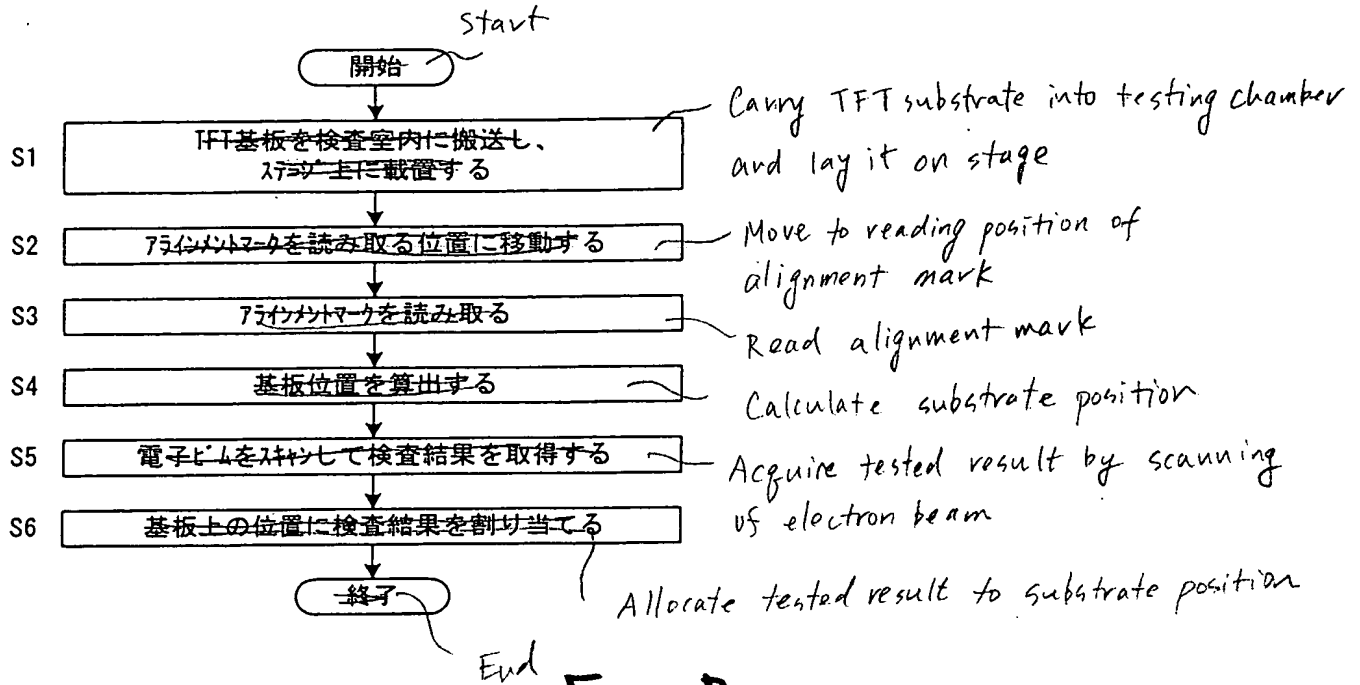 Start
開始
S1
TFT基板を検査室内に搬送し、
ステージ上に載置する
Carry TFT substrate into testing chamber
and lay it on stage
S2
アラインメントマークを読み取る位置に移動する
Move to reading position of
alignment mark
S3
アラインメントマークを読み取る
Read alignment mark
S4
基板位置を算出する
Calculate substrate position
S5
電子ビームをスキャンして検査結果を取得する
Acquire tested result by scanning
of electron beam
S6
基板上の位置に検査結果を割り当てる
Allocate tested result to substrate position
終了
End